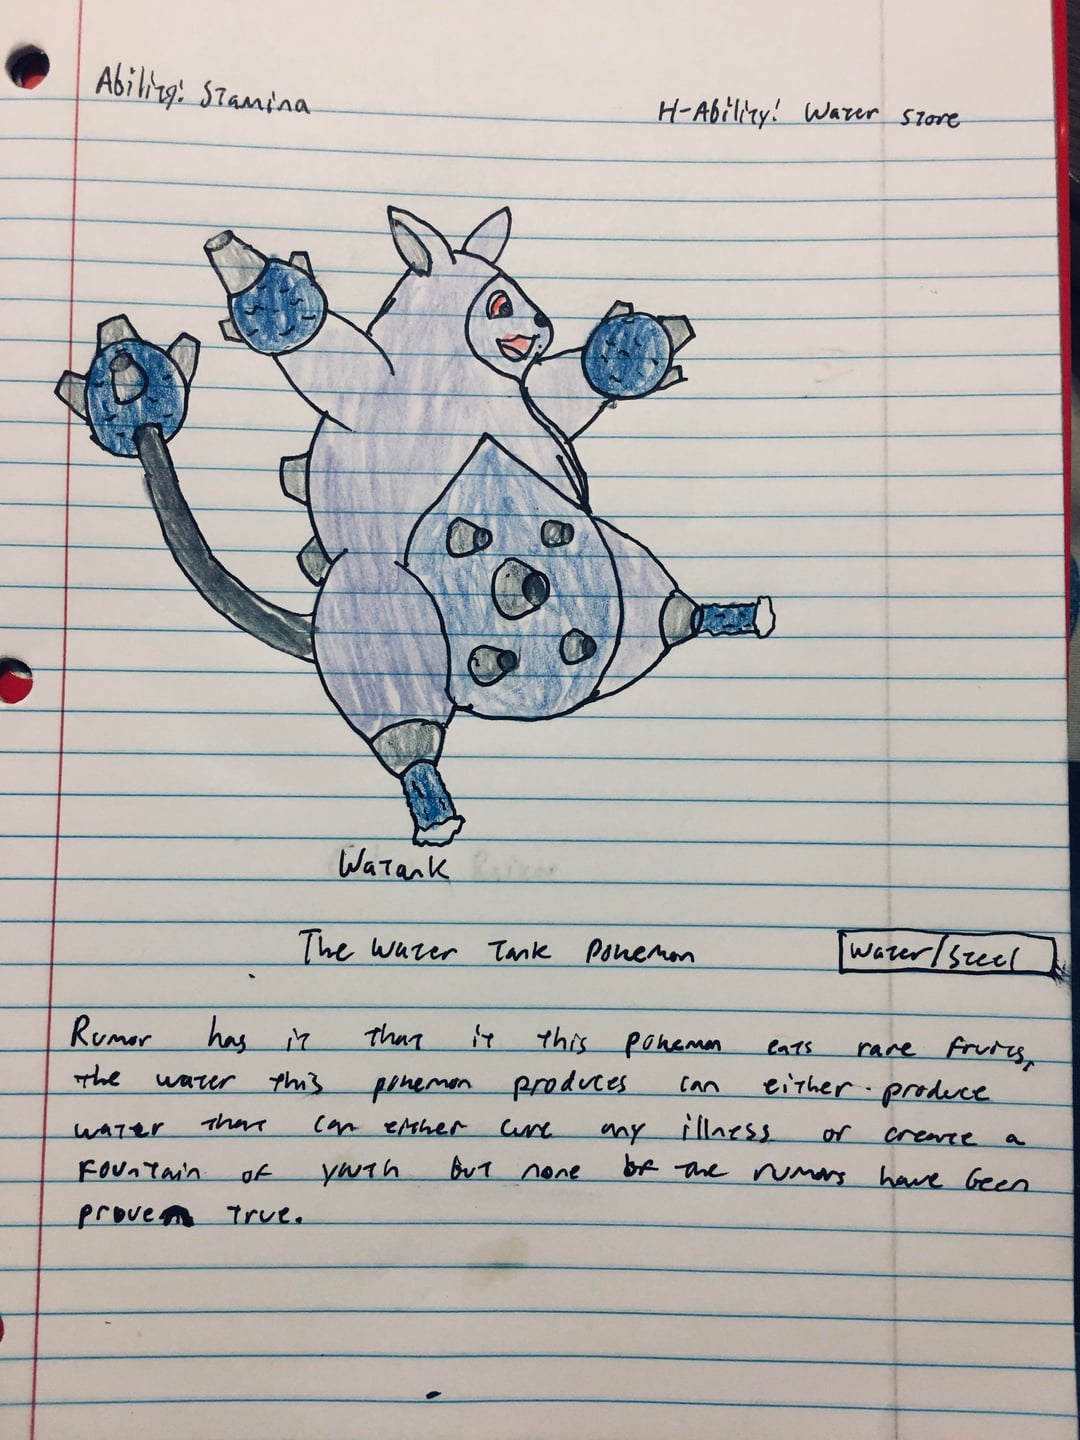 Ability: Stamina
H-Ability: Water Store
Watank
The Water Tank Pokemon
Water/Steel
Rumor has it that if this pokemon eats rare fruits,
the water this pokemon produces can either produce
water that can either cure any illness or create a
fountain of youth but none of the rumors have been
proven true.